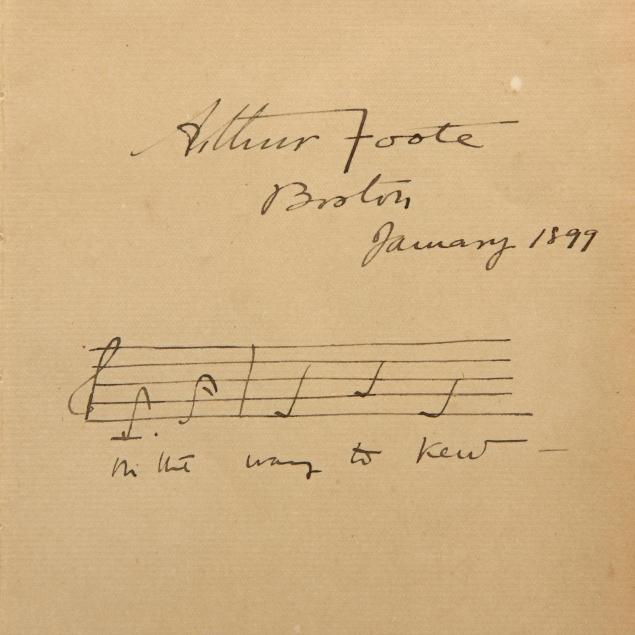 Arthur Foote
Boston
January 1899
On the way to Kew —